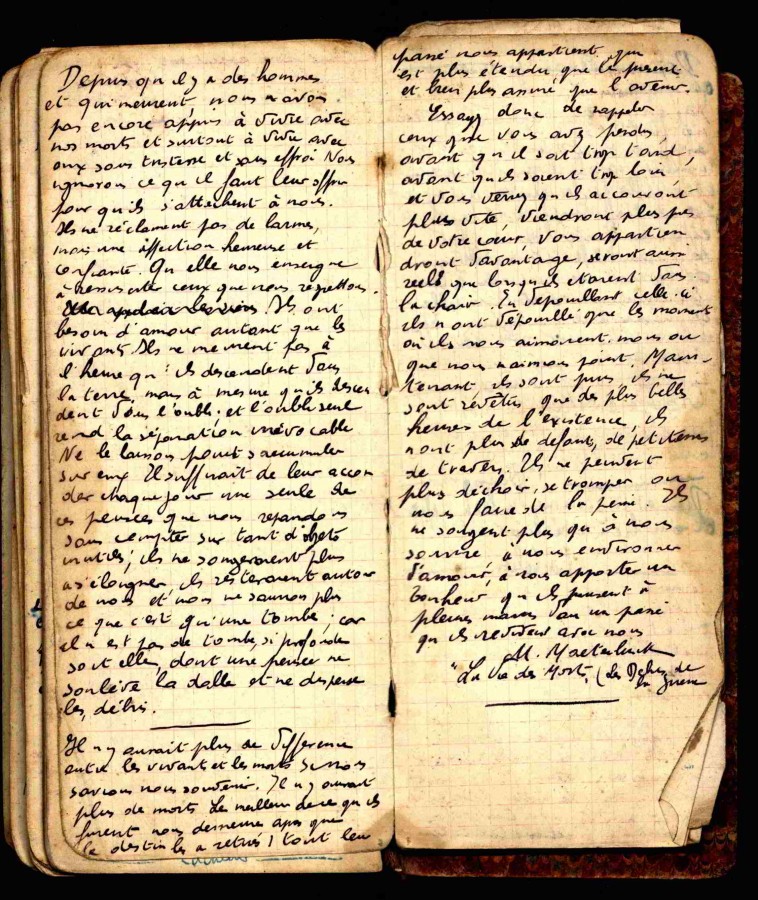 Depuis qu'il y a des hommes
et qui meurent, nous n'avons
pas encore appris à vivre avec
nos morts et surtout à vivre avec
eux sans tristesse et sans effroi Nous
ignorons ce qu'il faut leur offrir
pour qu'ils s'attachent à nous.
Ils ne réclament pas de larmes,
mais une affection heureuse et
confiante. Qu'elle nous enseigne
à ressusciter ceux que nous regrettons.
Ils ont
besoin d'amour autant que les
vivants Ils ne meurent pas à
l'heure qu' ils descendent dans
la terre, mais à mesure qu'ils descen
dent dans l'oubli. et l'oubli seul
rend la séparation irrévocable
Ne le laissons point s'accumuler
sur eux Il suffirait de leur accor
der chaque jour une seule de
ces pensées que nous répandons
sans compter sur tant d'objets
inutiles; ils ne songeraient plus
à s'éloigner ils resteraient autour
de nous et nous ne saurions plus
ce que c'est qu'une tombe; car
il n'est pas de tombe, si profonde
soit elle, dont une pensée ne
soulève la dalle et ne disperse
les débris.
Il n'y aurait plus de différence
entre les vivants et les morts si nous
savions nous souvenir. Il n'y aurait
plus de morts Le meilleur de ce qu'ils
furent nous demeure après que
le destin les a retirés; tout leur
passé nous appartient, qui
est plus étendu, que le présent
et bien plus assuré que l'avenir.
Essayez donc de rappeler
ceux que vous avez perdus,
avant qu'il soit trop tard,
avant qu'ils soient trop loin,
et vous verrez qu'ils accourront
plus vite, viendront plus près
de votre cœur, vous appartien
dront davantage, seront aussi
réels que lorsqu'ils étaient dans
la chair. En dépouillant celle-ci
ils n'ont dépouillé que les moments
où ils nous aimèrent moins ou
que nous n'aimions point. Main-
tenant ils sont purs ils ne
sont revêtus que des plus belles
heures de l'existence, ils
n'ont plus de défauts, de petitesses
de travers. Ils ne peuvent
plus déchoir, se tromper ou
nous faire de la peine. Ils
ne songent plus qu'à nous
sourire à nous environner
d'amour, à nous apporter un
bonheur qu'ils puisent à
pleines mains dans un passé
qu'ils revivent avec nous
M. Maeterlinck
"La Vie des Morts, (les Débris de
la guerre